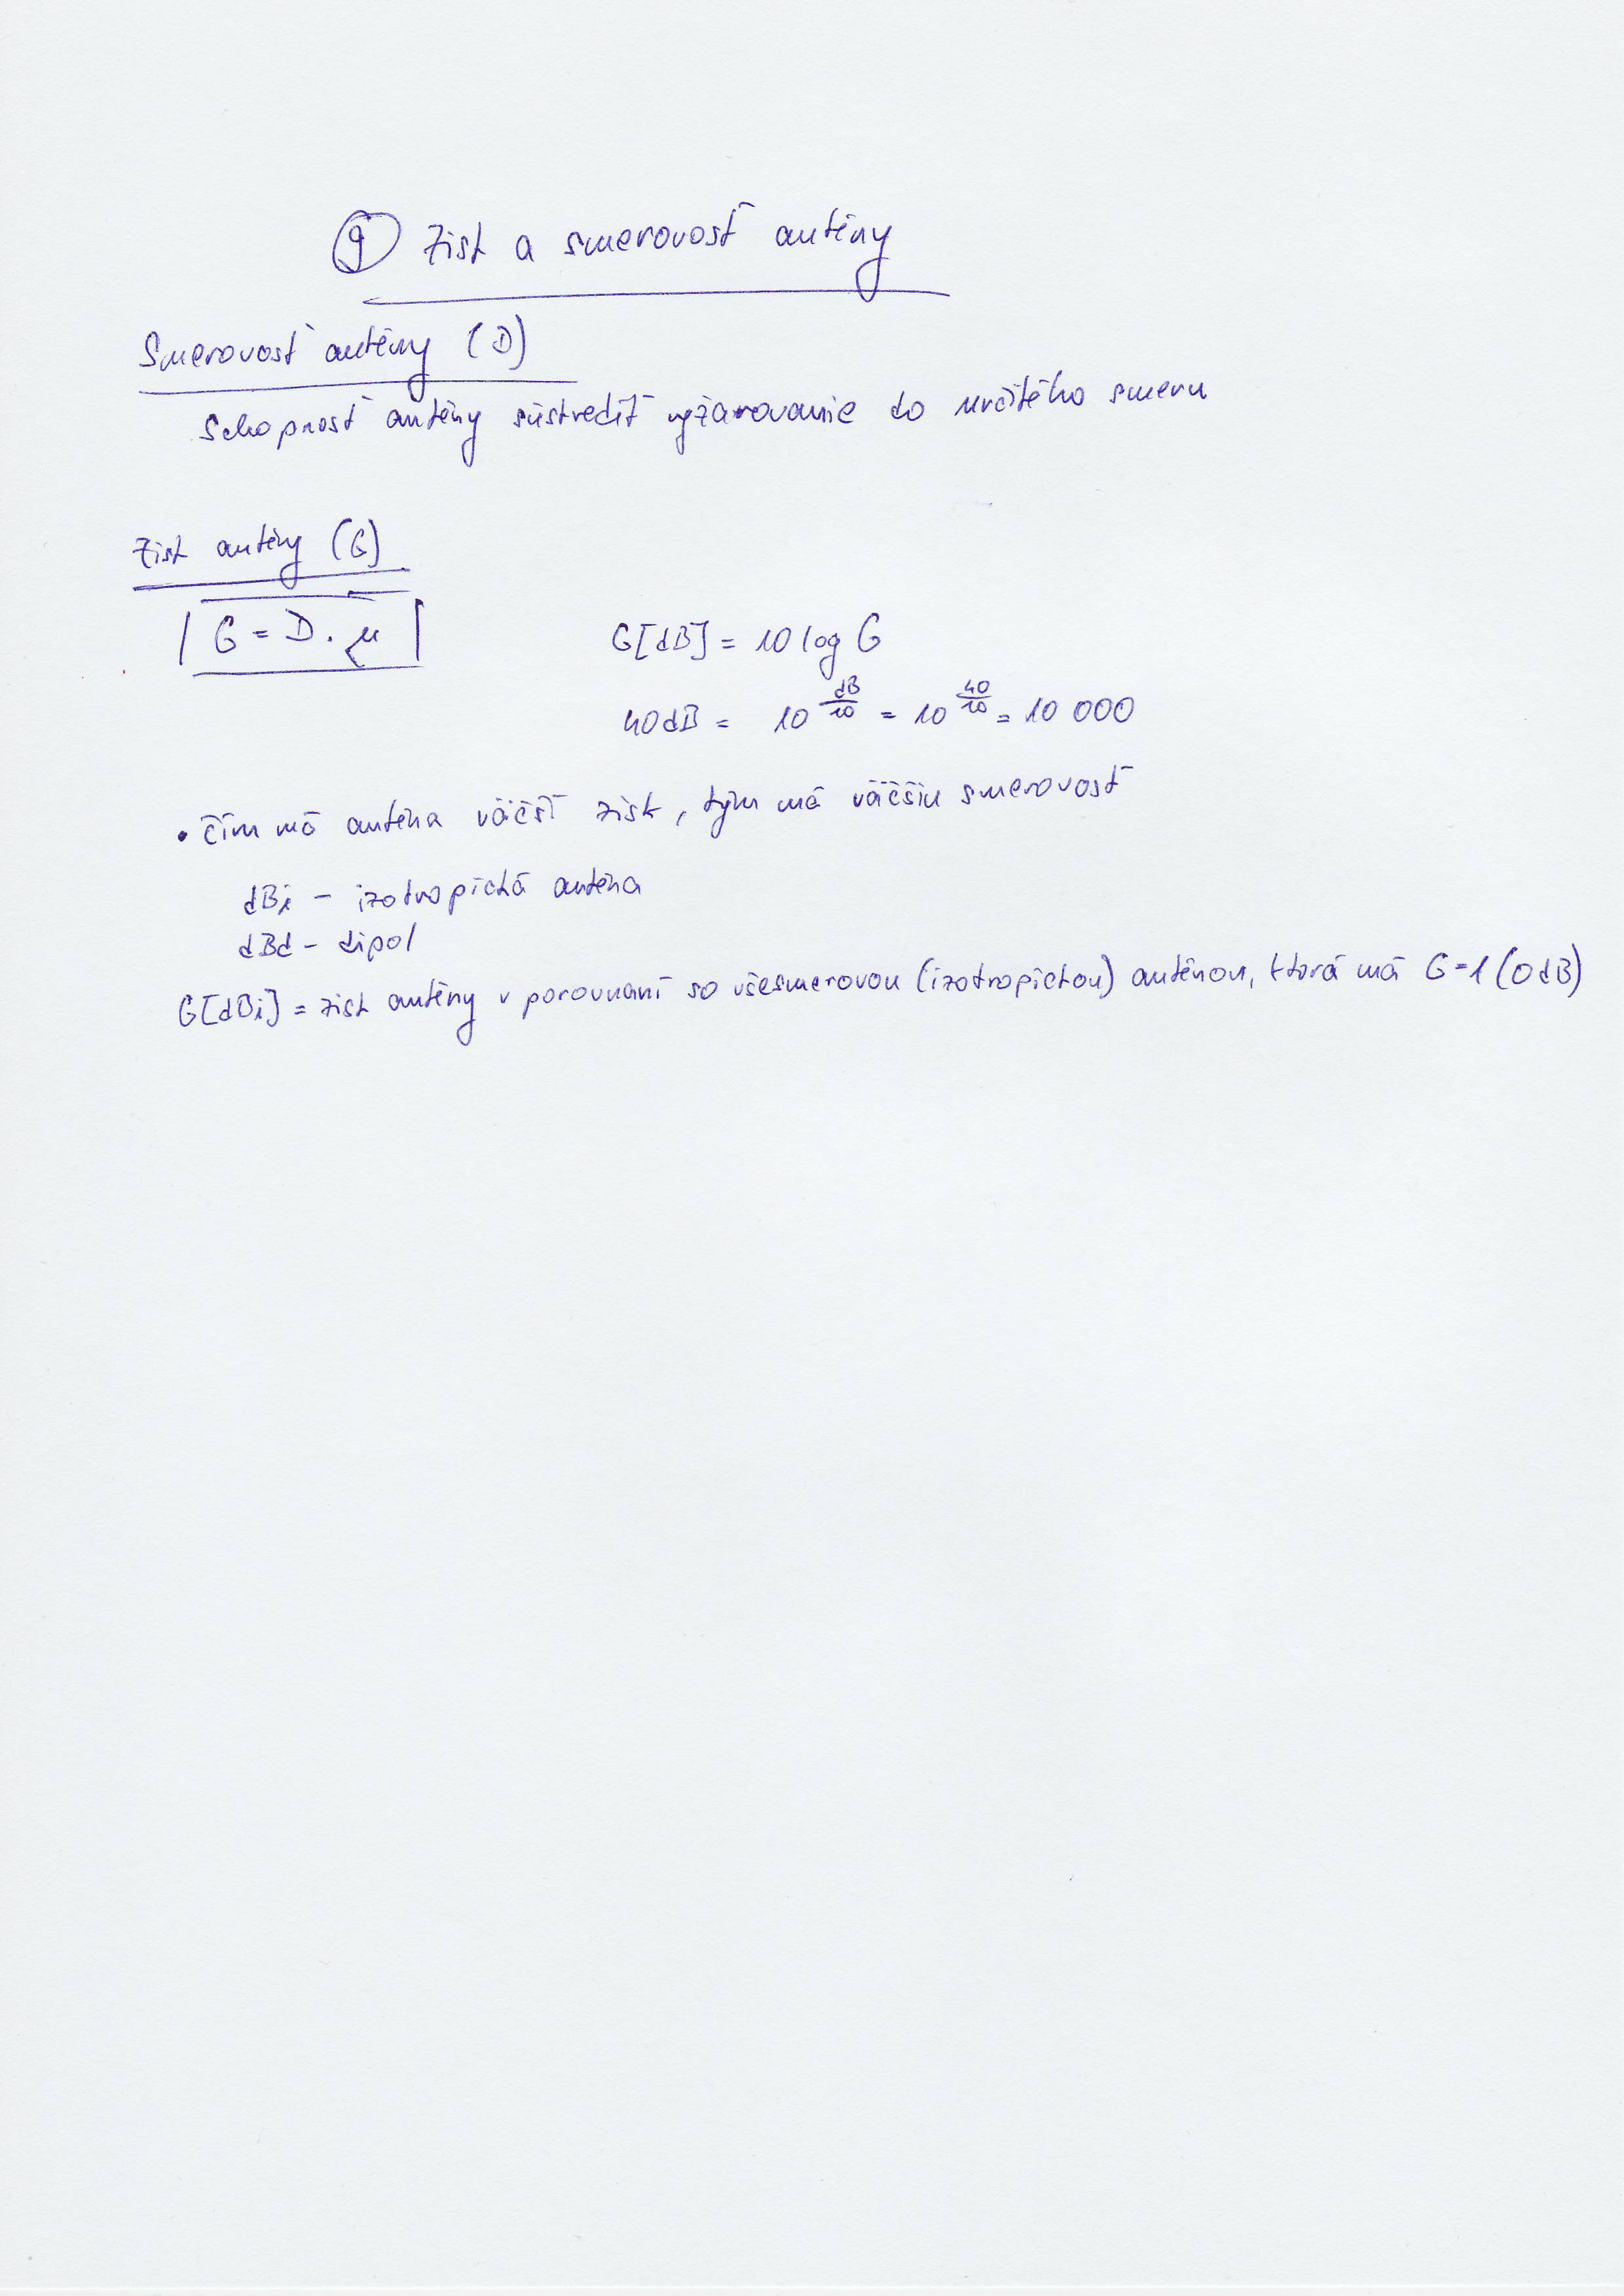 9 Zisk a smerovosť antény
Smerovosť antény (D)
Schopnosť antény sústrediť vyžarovanie do určitého smeru
Zisk antény (G)
G = D . μ
G[dB] = 10 log G
40dB = 10^(dB/10) = 10^(40/10) = 10 000
• čím má anténa väčší zisk, tým má väčšiu smerovosť
dBi - izotropická anténa
dBd - dipol
G[dBi] = zisk antény v porovnaní so všesmerovou (izotropickou) anténou, ktorá má G=1 (0dB)